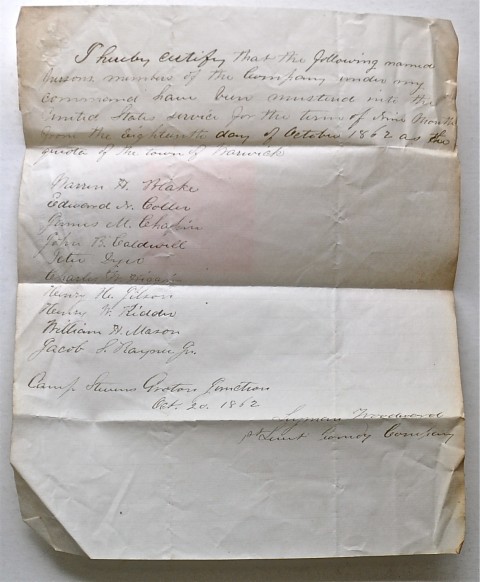 I hereby certify that the following named
persons members of the Company under my
command have been mustered into the
United States service for the term of Nine Months
from the eighteenth day of October 1862 as the
quota of the town of Warwick
Warren H. Blake
Edward N. Coller
James M. Chapin
John B. Caldwell
Peter Dyer
Charles
Henry H. Gilson
Henry W. Kidder
William H. Mason
Jacob S. Rayner Jr.
Camp Stevens Groton Junction
Oct. 20. 1862
Lyman Woodward
1st Lieut Comdg Company